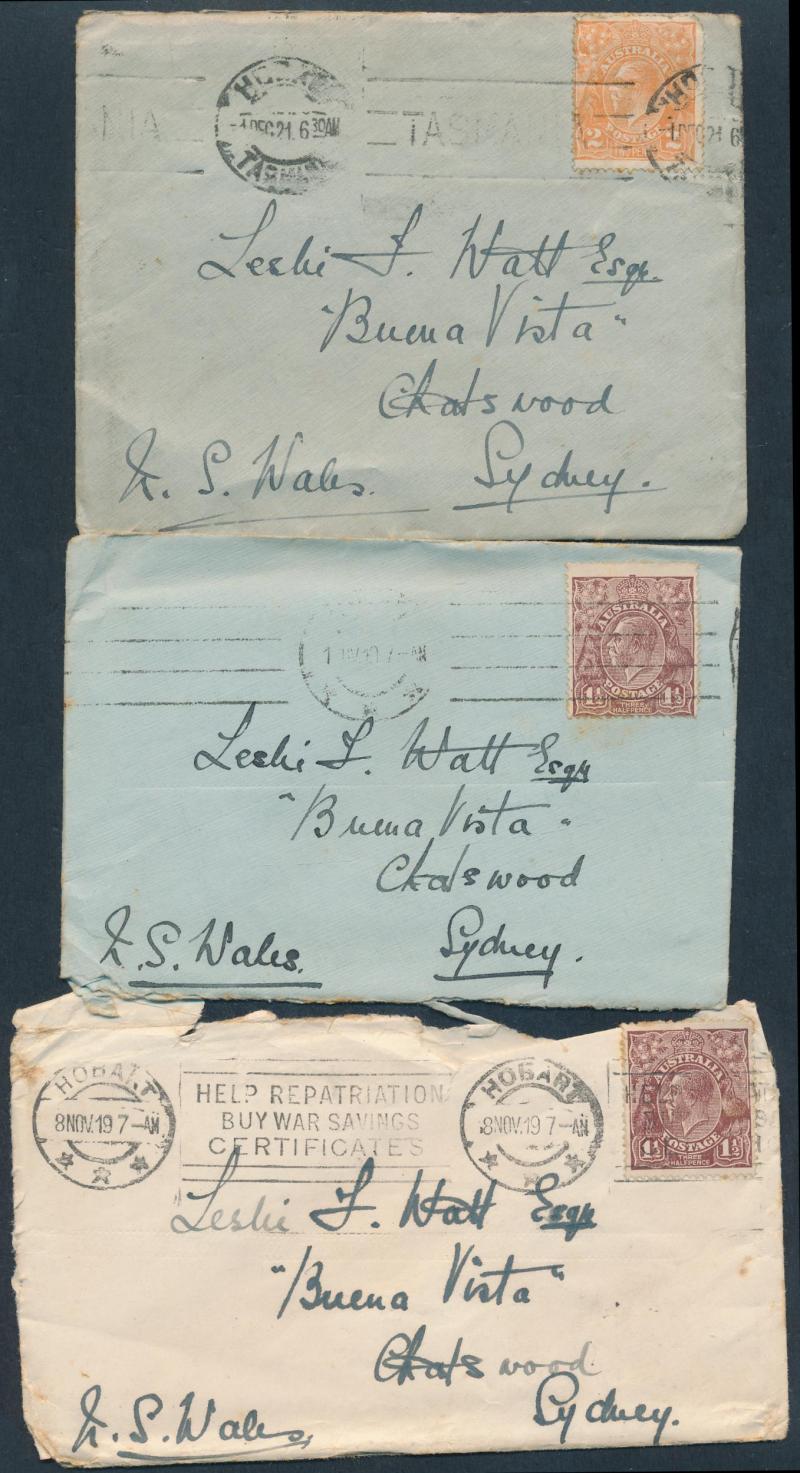 HOBART
-1DEC21.6 30AM
TASMANIA
TASMA
AUSTRALIA
2 2
POSTAGE
TWO PENCE
-1DEC21 6
Leslie F. Watt Esqr.
"Buena Vista"
Chatswood
N. S. Wales. Sydney.
7-AM
AUSTRALIA
POSTAGE
1½ 1½
THREE
HALFPENCE
Leslie F. Watt Esqr
"Buena Vista"
Chatswood
N.S. Wales. Sydney.
HOBART
8NOV.19 7-AM
HELP REPATRIATION
BUY WAR SAVINGS
CERTIFICATES
HOBART
8NOV.19 7-AM
AUSTRALIA
POSTAGE
1½ 1½
THREE
HALFPENCE
HEL
Leslie F. Watt Esqr
"Buena Vista"
Chatswood
N. S. Wales. Sydney.